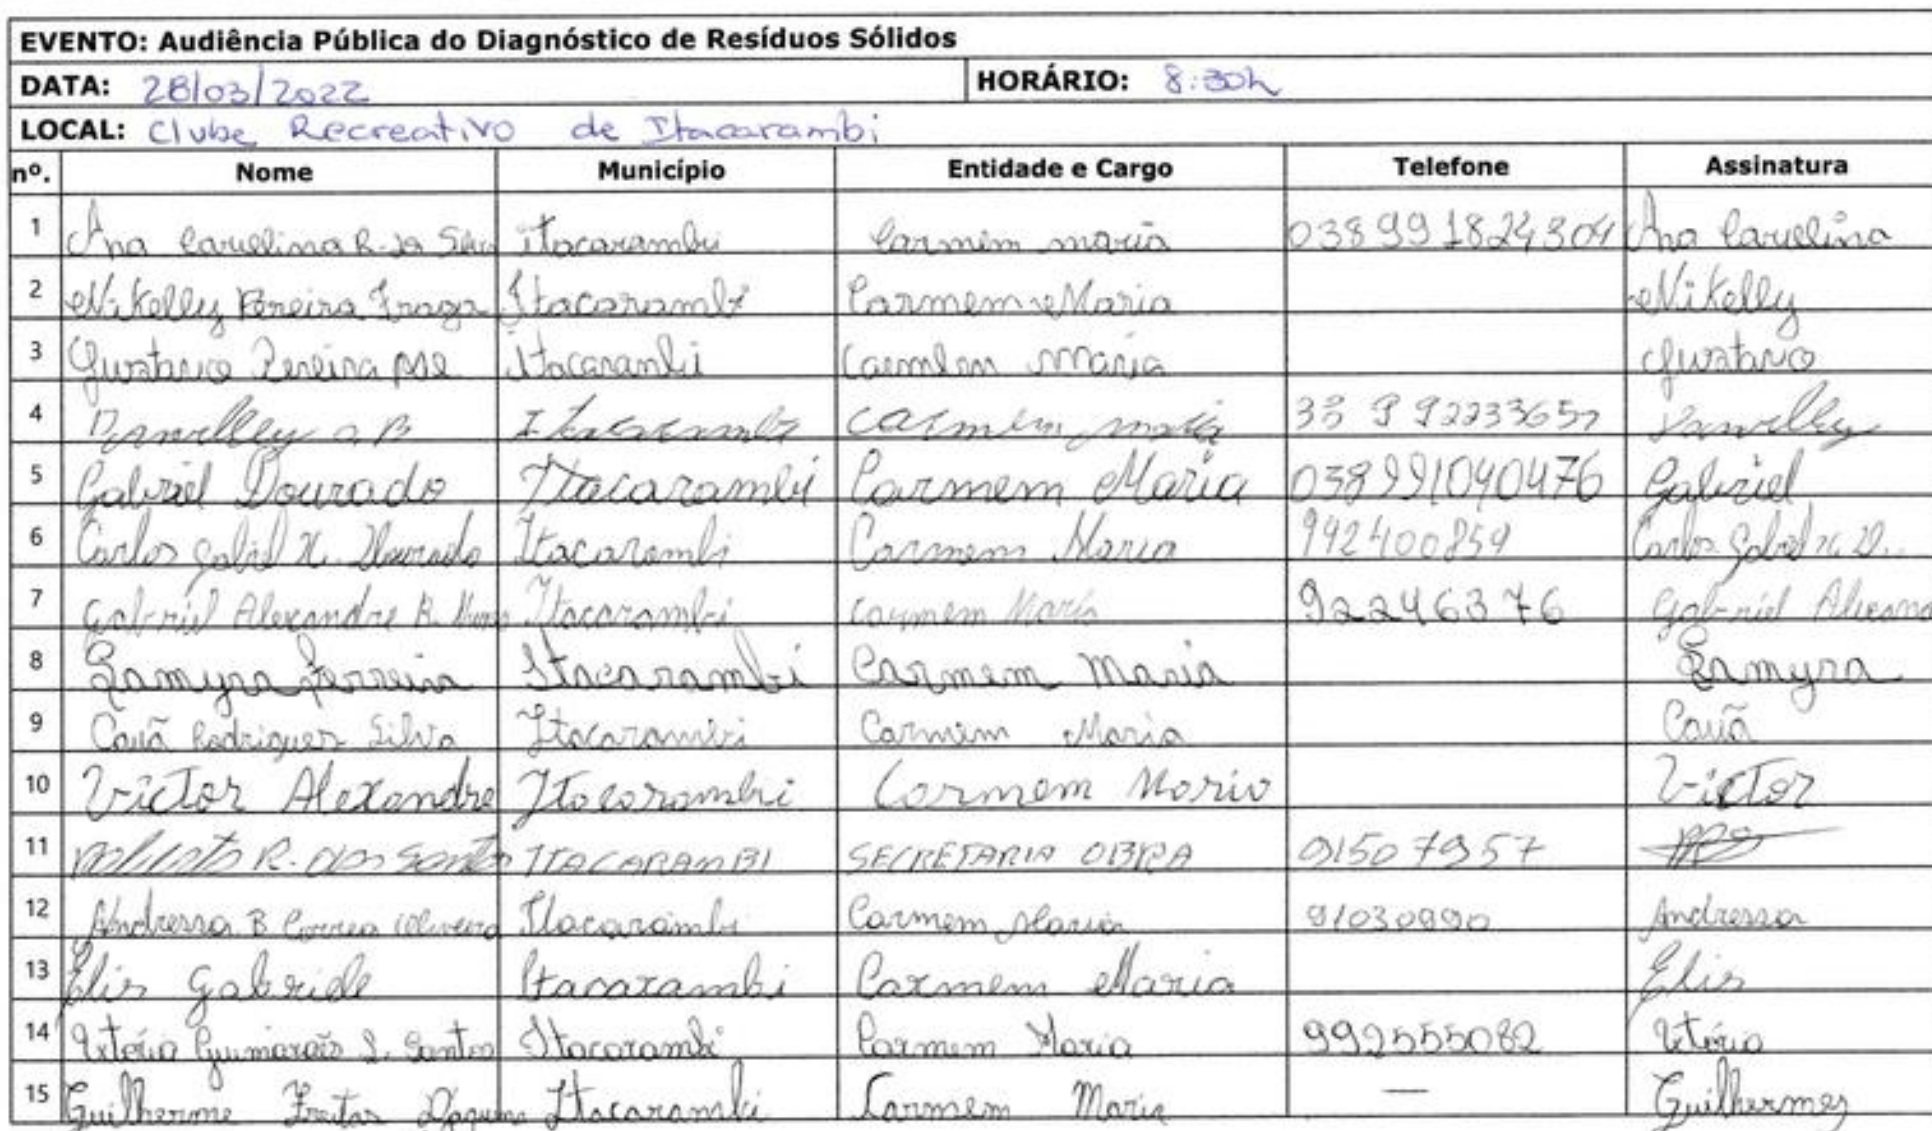 EVENTO: Audiência Pública do Diagnóstico de Resíduos Sólidos
DATA: 28/03/2022 HORÁRIO: 8:30h
LOCAL: Clube Recreativo de Itacarambi
nº. Nome Município Entidade e Cargo Telefone Assinatura
1 Ana Carselina R. da Silva itacarambi Carmem maria 038991824304 Ana Carselina
2 Nikelly Pereira Fraga Itacarambi Carmem Maria Nikelly
3 Gustavo Pereira Itacarambi Carmem Maria Gustavo
4 Itacarambi Carmem maria
5 Gabriel Dourado Itacarambi Carmem Maria 038991040476 Gabriel
6 Carlos Gabriel X. Dourado Itacarambi Carmem Maria 992400859 Carlos Gabriel X. D..
7 Gabriel Alexandre R. Itacarambi Carmem Maria 92246376 Gabriel
8 Samyra Ferreira Itacarambi Carmem Maria Samyra
9 Cauã Rodrigues Silva Itacarambi Carmem Maria Cauã
10 Victor Alexandre Itacarambi Carmem Maria Victor
11 R. dos Santos ITACARAMBI SECRETARIA OBRA 91507957
12 Andressa B Correa Oliveira Itacarambi Carmem Maria 91030990 Andressa
13 Elis Gabriele Itacarambi Carmem Maria Elis
14 Vitória Guimarães S. Santos Itacarambi Carmem Maria 992555082 Vitória
15 Guilherme Freitas Itacarambi Carmem Maria — Guilherme